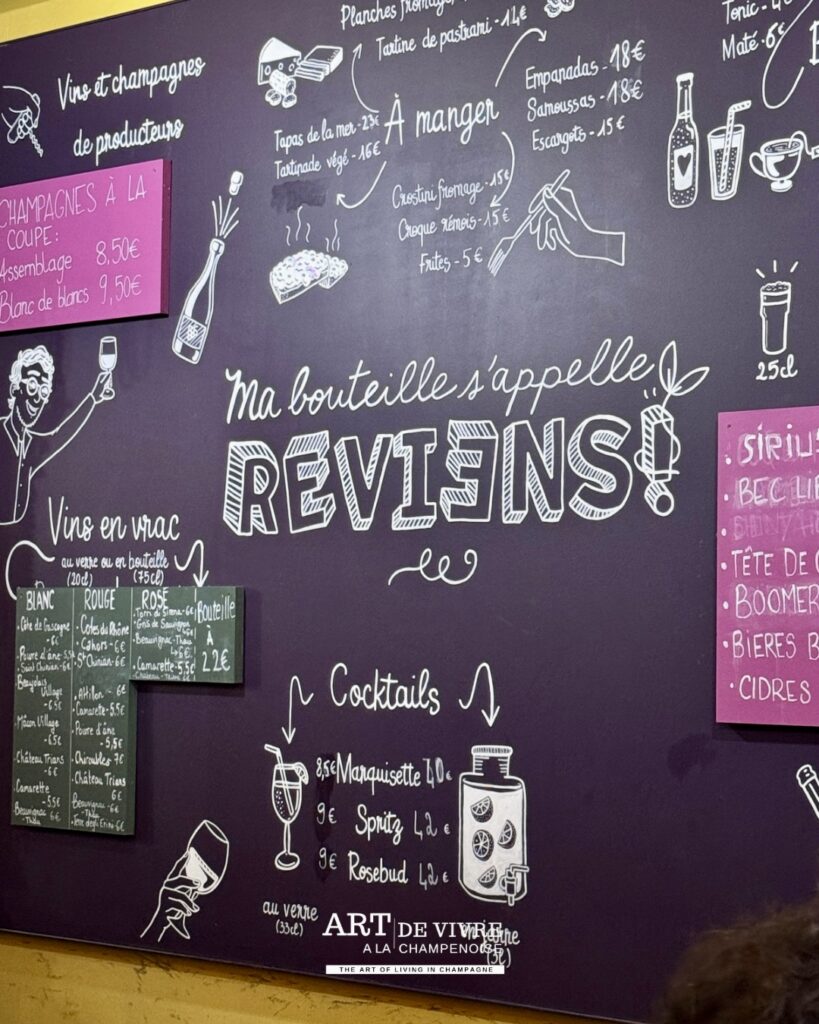 Planches
Tartine de pastrami - 14€
Tonic -
Maté - 6€
Vins et champagnes
de producteurs
À manger
Tapas de la mer - 23€
Tartinade végé - 16€
Empanadas - 18€
Samoussas - 18€
Escargots - 15€
Crostini fromage - 15€
Croque rémois - 15€
Frites - 5€
CHAMPAGNES À LA
COUPE :
Assemblage 8,50€
Blanc de blancs 9,50€
25cl
Ma bouteille s'appelle
REVIENS!
Vins en vrac
au verre ou en bouteille
(20cl) (75cl)
BLANC
Côte de Gascogne
-6€
Poivre d'âne - 5,5€
Saint Chinian - 6€
Beaujolais
Village
- 6.5€
Mâcon Village
- 6.5€
Château Trians
6€
Camarette
- 5.5€
Beauvignac
ROUGE
Cotes du Rhône
Cahors - 6€
St Chinian - 6€
Camarette - 5,5€
Poivre d'âne
- 5,5€
Chiroubles 7€
Château Trians
6€
Beauvignac
6€
ROSÉ
Gris de Sauvignon
Beauvignac
6€
Camarette - 5,5€
Bouteille
À
22€
SIRIUS
BEC
TÊTE DE
BOOMER
BIERES
CIDRES
Cocktails
8,5€ Marquisette 40€
9€ Spritz 42€
9€ Rosebud 42€
au verre
(33cl)
(3l)
ART DE VIVRE
A LA CHAMPENOISE
THE ART OF LIVING IN CHAMPAGNE